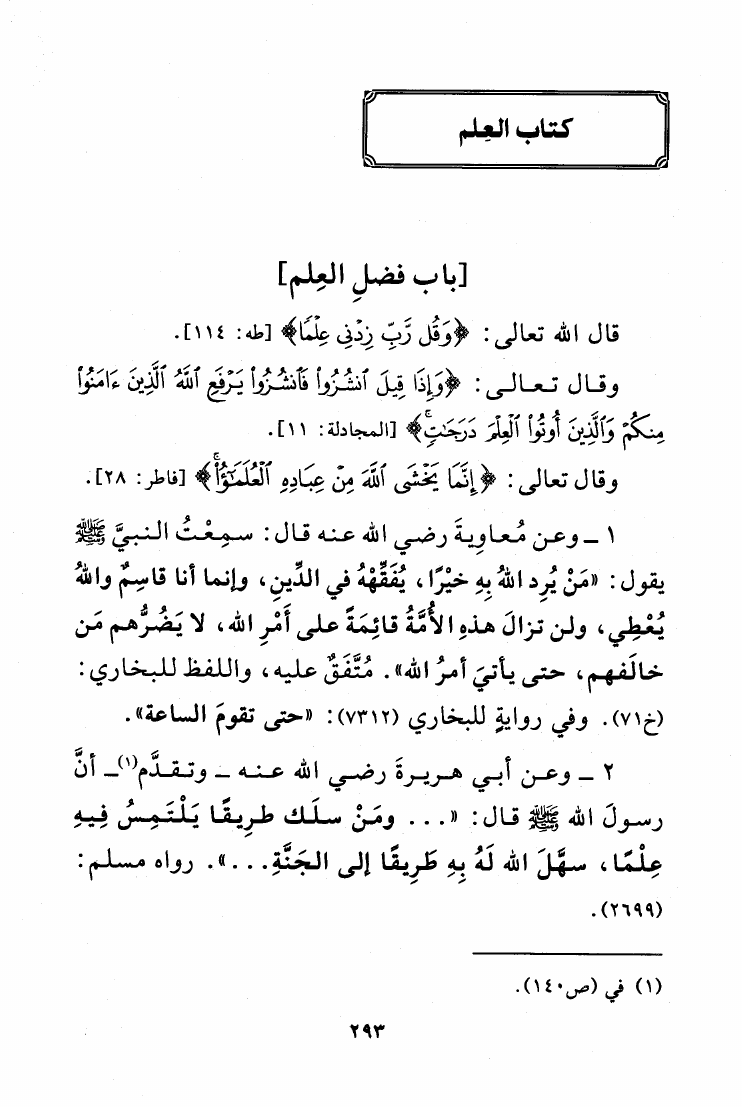 كتاب العِلم
[باب فضلِ العِلم]
قال الله تعالى: ﴿وَقُل رَّبِّ زِدْنِي عِلْمًا﴾ [طه: ١١٤].
وقـال تـعـالـى: ﴿وَإِذَا قِيلَ ٱنشُزُواْ فَٱنشُزُواْ يَرْفَعِ ٱللَّهُ ٱلَّذِينَ ءَامَنُواْ
مِنكُمْ وَٱلَّذِينَ أُوتُواْ ٱلْعِلْمَ دَرَجَٰتٍۚ﴾ [المجادلة: ١١].
وقال تعالى: ﴿إِنَّمَا يَخْشَى ٱللَّهَ مِنْ عِبَادِهِ ٱلْعُلَمَٰٓؤُاْۗ﴾ [فاطر: ٢٨].
١ ـ وعـن مُعـاوِيةَ رضـي الله عنـه قـال: سـمِعْتُ النبيَّ ﷺ
يقول: «مَنْ يُرِد اللهُ بِهِ خيْرًا، يُفَقِّهْهُ في الدِّينِ، وإنما أنا قاسِمٌ واللهُ
يُعْطِي، ولن تزالَ هذهِ الأُمَّةُ قائِمَةً على أَمْرِ الله، لا يَضُرُّهم مَن
خالَفهم، حتى يأتيَ أمرُ الله». مُتَّفَقٌ عليه، واللفظ للبخاري:
(خ٧١). وفي روايةٍ للبخاري (٧٣١٢): «حتى تقومَ الساعة».
٢ ـ وعـن أبـي هـريـرةَ رضـي الله عنـه ـ وتـقـدَّم(١)ـ أنَّ
رسـولَ الله ﷺ قـال: «... ومَـنْ سلَـك طـرِيقًـا يَلْتَمِسُ فِيـهِ
عِلْمًـا، سهَّلَ الله لَهُ بِهِ طَرِيقًا إلى الجَنَّةِ...». رواه مسلم:
(٢٦٩٩).
(١) في (ص١٤٠).
٢٩٣